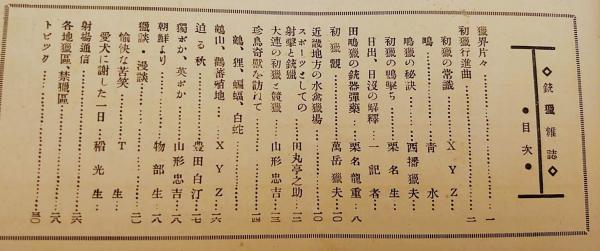 ◇銃獵雜誌◇
●目次●
獵界片々……一
獵期行進曲……二
初獵の常識……X Y Z…二
鴫……青水…四
鴫獵の秘訣……西播獵夫…五
初獵の鴨擊ち……栗名生…
日出、日沒の解釋……一記者…
田鴫獵の銃器彈藥……栗名龍重…八
初獵觀……萬岳獵夫…一〇
近畿地方の水禽獵場……一〇
スポーツとしての
射擊と銃獵……田丸亭之助…一二
大連の初獵と贊獵……山形忠吉…一三
珍鳥奇獸を訪れて……一四
鵜、狸、蝙蝠、白蛇
鶴山、鸛蕃殖地……X Y Z…一六
迫る秋……豊田白汀…一七
獨ポか、英ポか……山形忠吉…一八
朝鮮より……物部生…一八
獵談・漫談……二〇
愉快な苦笑……T生…
愛犬に謝した一日……稻光生…
射場通信……二六
各地獵區、禁獵區……二八
トピック……三〇